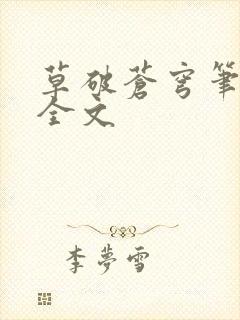 草破蒼穹筆
全文
李夢雪